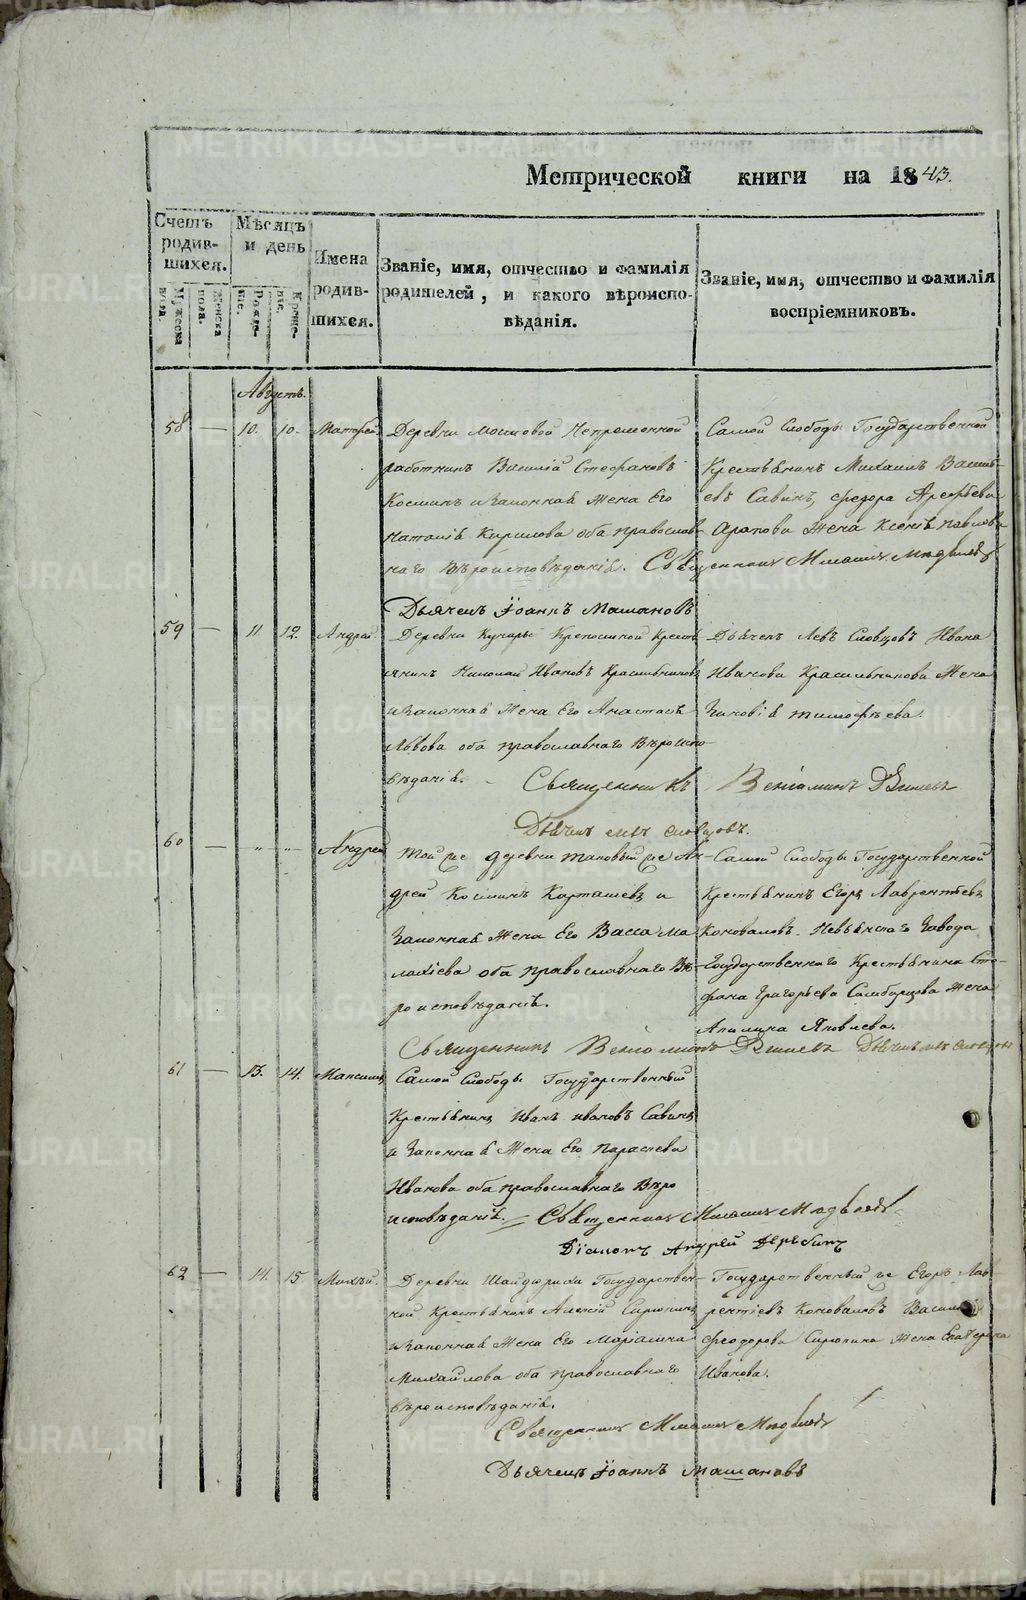 Метрической книги на 1843.
Счетъ родив-шихся.
Мѣсяцъ и день
Имена родив-шихся.
Званіе, имя, отчество и фамилія родителей, и какого вѣроиспо-вѣданія.
Званіе, имя, отчество и фамилія воспріемниковъ.
Мужеска пола.
Женска пола.
Рожде-ніе.
Креще-ніе.
Августъ.
58 — 10. 10. Матфей
Деревни Мостовой Непременной
работникъ Василій Стефановъ
Косминъ и Законная Жена Его
Наталія Кирилова оба православ-
наго Вѣроисповѣданія.
Самой Слободы Государственной
Крестьянинъ Михаилъ Василь-
евъ Савинъ, Федора Арефьева
Арапова Жена Ксенія Павлова
Священникъ Михаилъ
Дьячекъ Іоаннъ Машановъ
59 — 11. 12. Андрей
Деревни Кунары Крепостной Кресть-
янинъ Николай Ивановъ Красильниковъ
и Законная Жена Его Анастасія
Львова оба православнаго Вѣроиспо-
вѣданія.
Дьячекъ Левъ Словцовъ Ивана
Иванова Красильникова Жена
Зиновія Тимофѣева.
Священникъ Веніаминъ
Дьячекъ Левъ Словцовъ.
60 — " — " — Андрей
Той же деревни таковый же Ан-
дрей Косминъ Карташевъ и
Законная Жена Его Васса Ма-
лахіева оба православнаго Вѣ-
роисповѣданія.
Самой Слободы Государственной
Крестьянинъ Егоръ Лаврентьевъ
Коноваловъ. Невьянскаго Завода
Государственнаго Крестьянина Сте-
фана Григорьева Самбарцова Жена
Акилина Яковлева.
Священникъ Веніаминъ Дьячекъ Левъ Словцовъ
61 — 13. 14. Максимъ
Самой Слободы Государственный
Крестьянинъ Иванъ Ивановъ Савинъ
и Законная Жена Его Параскева
Иванова оба православнаго Вѣро
исповѣданія. Священникъ Михаилъ
Діаконъ Андрей Дерябинъ
62 — 14. 15 Михѣй.
Деревни Шайдурихи Государствен-
ной Крестьянинъ Алексій Сиропинъ
и Законная Жена Его Маріамна
Михайлова оба православнаго
Вѣроисповѣданія.
Государственный же Егоръ Лав
рентіевъ Коноваловъ Василья
Феодорова Сиропина Жена Екатерина
Иванова.
Священникъ Михаилъ
Дьячекъ Іоаннъ Машановъ
METRIKI.GASO-URAL.RU